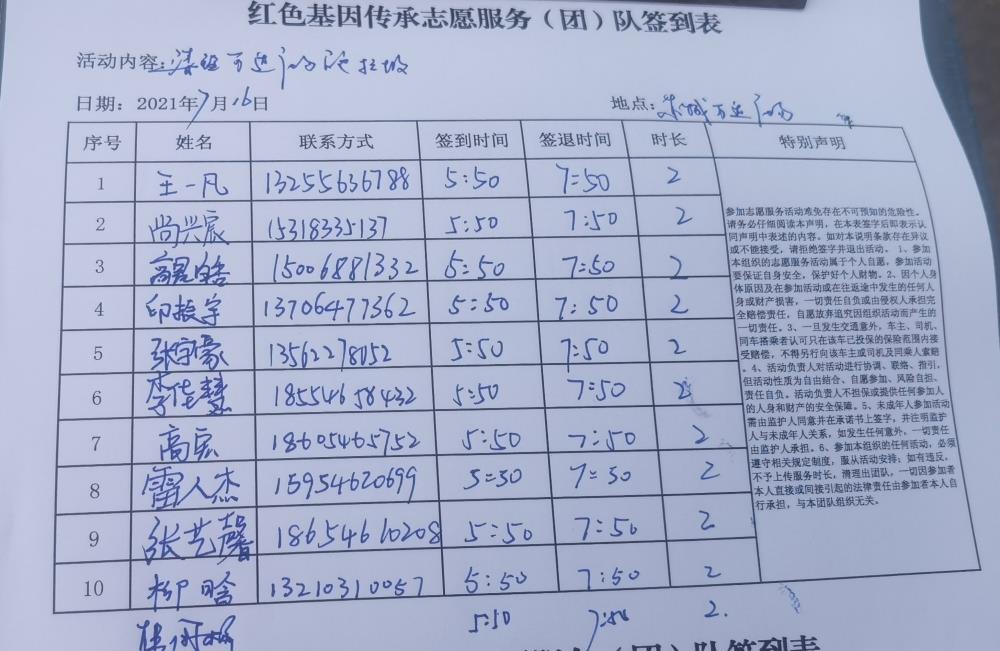 红色基因传承志愿服务（团）队签到表
活动内容：
日期：2021年7月16日 地点：东城万达广场
序号 姓名 联系方式 签到时间 签退时间 时长 特别声明
1 王一凡 13255636788 5:50 7:50 2
2 尚兴宸 15318335137 5:50 7:50 2
3 15006881332 5:50 7:50 2
4 印振宇 13706477362 5:50 7:50 2
5 张宇豪 13562278052 5:50 7:50 2
6 李佳慧 18554658432 5:50 7:50 2
7 高宏 18605465752 5:50 7:50 2
8 雷人杰 15954620699 5:30 7:30 2
9 张艺馨 18654660208 5:50 7:50 2
10 柳晗 13210310057 5:50 7:50 2
5:50 7:50 2.
参加志愿服务活动难免存在不可预知的危险性。
请务必仔细阅读本声明，在本表签字后即表示认
同声明中表述的内容。如对本说明条款存在异议
或不能接受，请拒绝签字并退出活动。1、参加
本组织的志愿服务活动属于个人自愿，参加活动
要保证自身安全，保护好个人财物。2、因个人身
体原因及在参加活动或在往返途中发生的任何人
身或财产损害，一切责任自负或由侵权人承担完
全赔偿责任，自愿放弃追究因组织活动而产生的
一切责任。3、一旦发生交通意外，车主、司机、
同车搭乘者认可只在该车已投保的保险范围内接
受赔偿，不得另行向该车主或司机及同乘人索赔
。4、活动负责人对活动进行协调、联络、指引，
但活动性质为自由结合、自愿参加、风险自担、
责任自负。活动负责人不担保或提供任何参加人
的人身和财产的安全保障。5、未成年人参加活动
需由监护人同意并在承诺书上签字，并注明监护
人与未成年人关系，如发生任何意外，一切责任
由监护人承担。6、参加本组织的任何活动，必须
遵守相关规定制度，服从活动安排；如有违反，
不予上传服务时长，清理出团队，一切因参加者
本人直接或间接引起的法律责任由参加者本人自
行承担，与本团队组织无关。
（团）队签到表